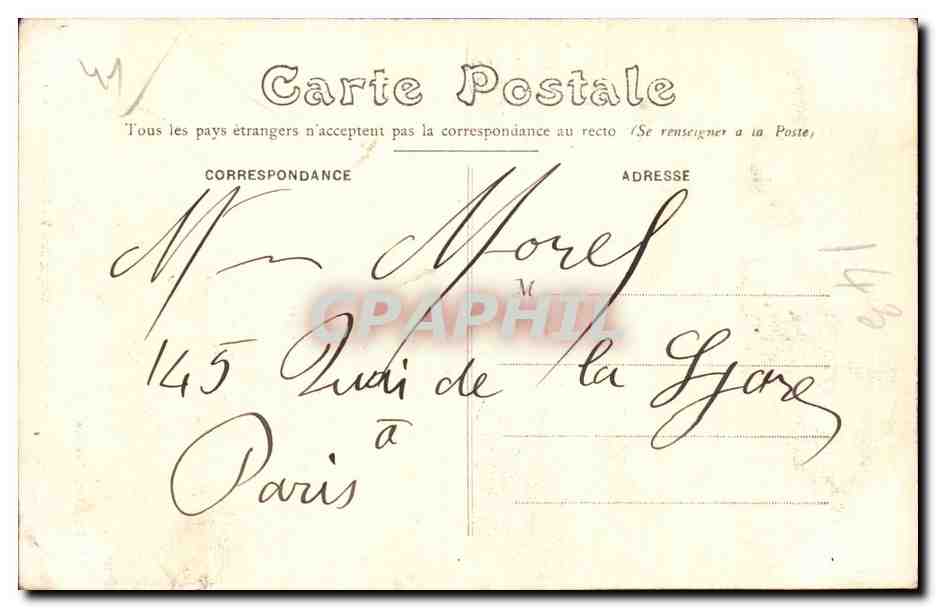 Carte Postale
Tous les pays étrangers n'acceptent pas la correspondance au recto (Se renseigner à la Poste)
CORRESPONDANCE
ADRESSE
Morel
M
CPAPHIL
145 Quai de la Gare
à
Paris